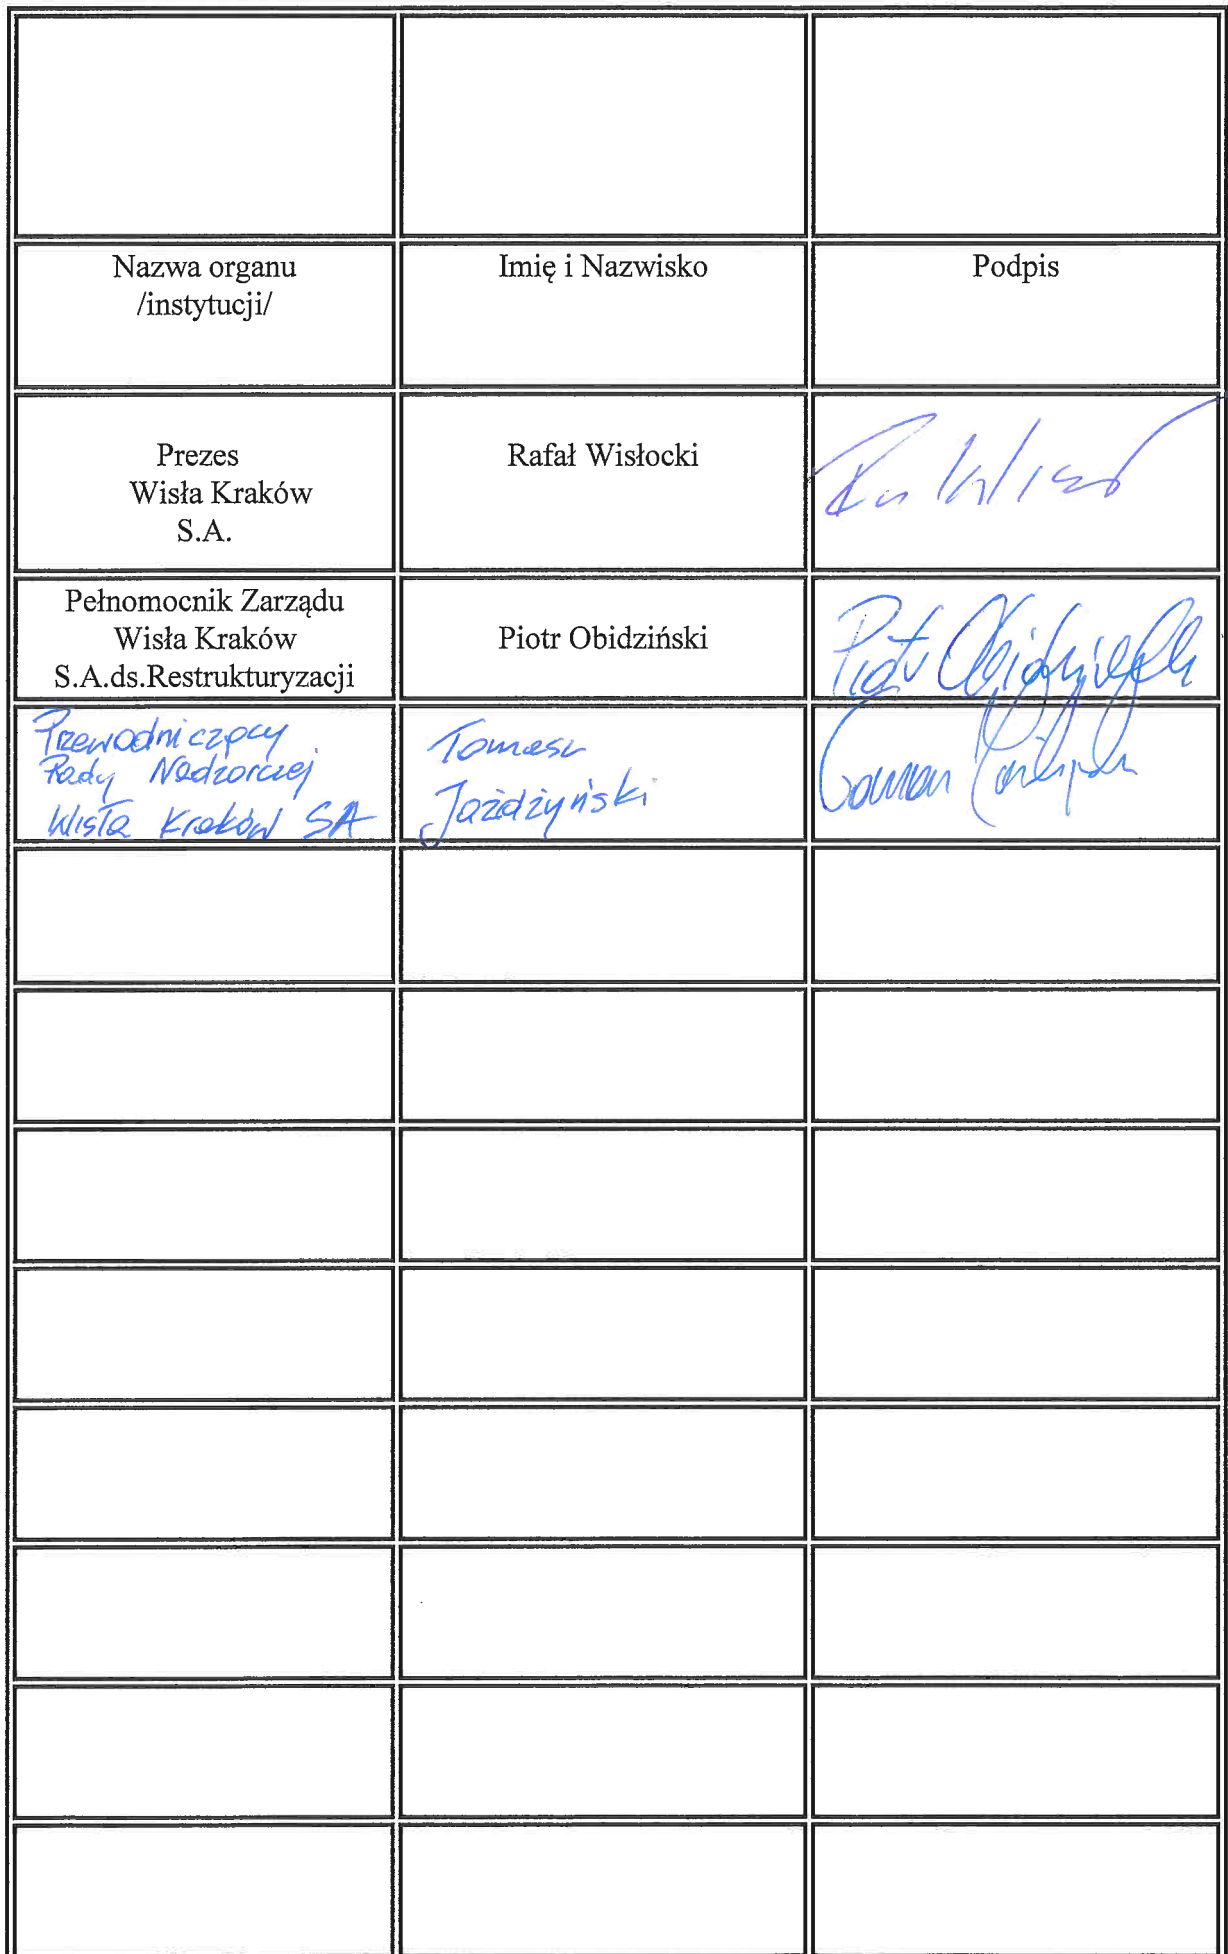 Nazwa organu
/instytucji/
Imię i Nazwisko
Podpis
Prezes
Wisła Kraków
S.A.
Rafał Wisłocki
Pełnomocnik Zarządu
Wisła Kraków
S.A.ds.Restrukturyzacji
Piotr Obidziński
Piotr Obidziński
Przewodniczący
Rady Nadzorczej
Wisła Kraków SA
Tomasz
Jażdżyński